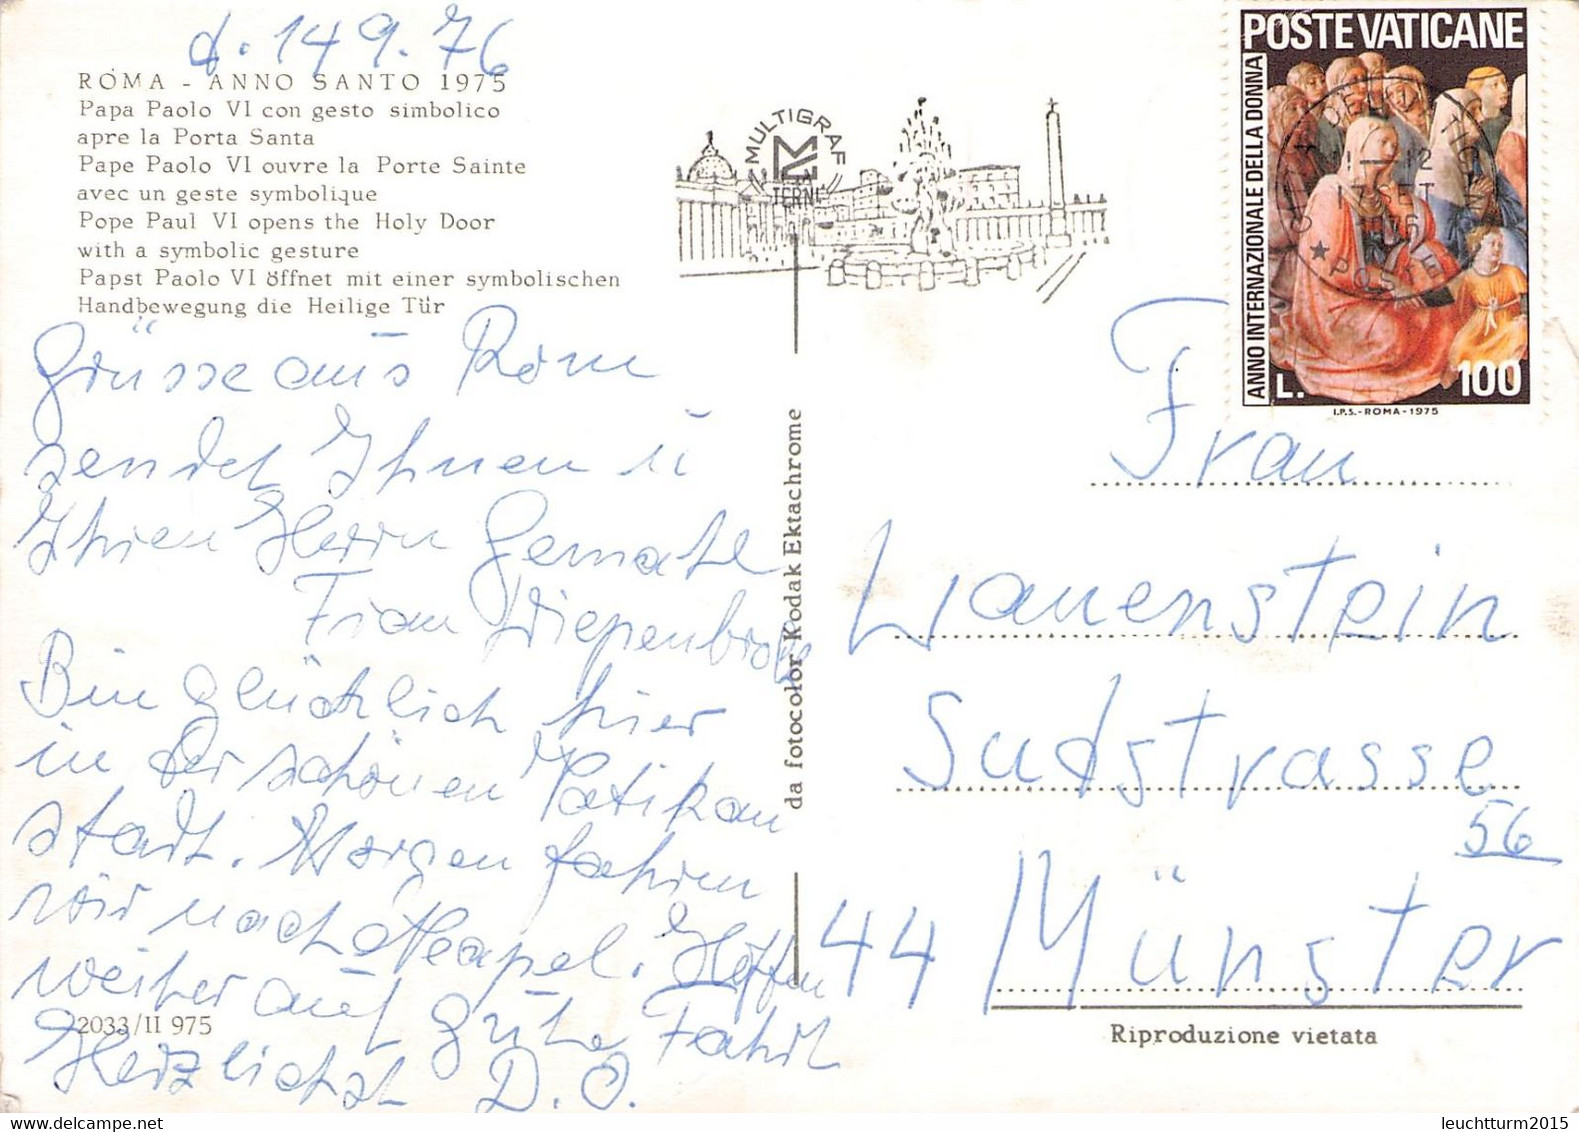 d. 14 9. 76
ROMA - ANNO SANTO 1975
Papa Paolo VI con gesto simbolico
apre la Porta Santa
Pape Paolo VI ouvre la Porte Sainte
avec un geste symbolique
Pope Paul VI opens the Holy Door
with a symbolic gesture
Papst Paolo VI öffnet mit einer symbolischen
Handbewegung die Heilige Tür
Grüsse aus Rom
sendet Ihnen u
Ihren Herrn Gemahl
Frau Wiepenbrock
Bin glücklich hier
in der schönen Vatikan
stadt. Morgen fahren
wir nach Neapel. Hoffen
weiter auf gute Fahrt
Herzlichst D. O.
2033/II 975
da fotocolor Kodak Ektachrome
MULTIGRAF
TERNI
POSTE VATICANE
ANNO INTERNAZIONALE DELLA DONNA
L. 100
I.P.S.-ROMA-1975
11-12
17 SET
POSTE
Frau
Wauenstein
Sudstrasse
56
44 Münster
Riproduzione vietata
leuchtturm2015